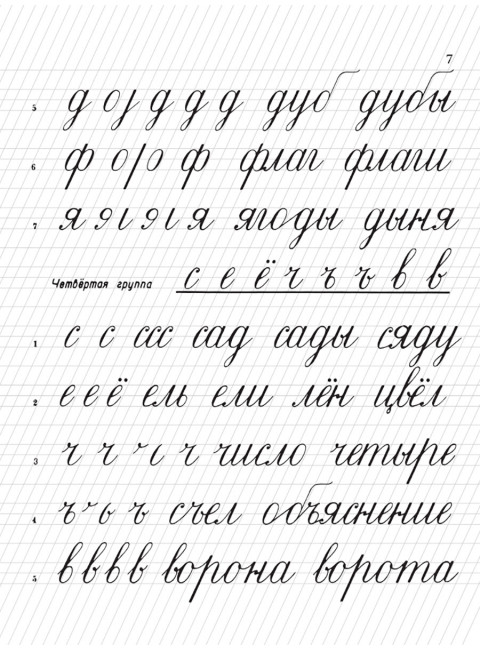 7
5 д о ȷ д д д дуб дубы
6 ф о ȷ о ф флаг флаги
7 я э ι э ι я ягоды дыня
Четвёртая группа с е ё ч ъ ъ в в
1 с с ссс сад сады сяду
2 е е ё ель ели лён цвёл
3 ч ч ч число четыре
4 ъ ъ счел объяснение
5 в в в в ворона ворота